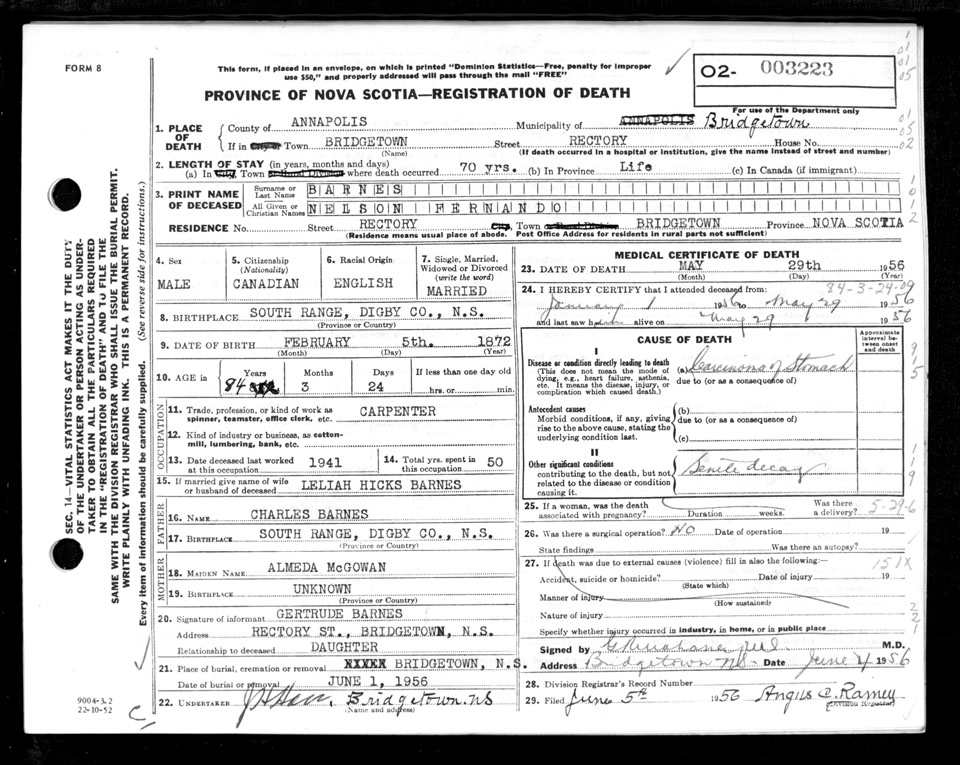 FORM 8
This form, if placed in an envelope, on which is printed "Dominion Statistics—Free, penalty for improper
use $50," and properly addressed will pass through the mail "FREE"
O2- 003223
For use of the Department only
PROVINCE OF NOVA SCOTIA—REGISTRATION OF DEATH
1. PLACE OF DEATH { County of ANNAPOLIS Municipality of ANNAPOLIS Bridgetown
If in City or Town BRIDGETOWN Street RECTORY House No.
(Name) (If death occurred in a hospital or institution, give the name instead of street and number)
2. LENGTH OF STAY (in years, months and days)
(a) In City, Town or Rural Division where death occurred 70 yrs. (b) In Province Life (c) In Canada (if immigrant)
3. PRINT NAME OF DECEASED { Surname or Last Name BARNES
All Given or Christian Names NELSON FERNANDO
RESIDENCE No. Street RECTORY City, Town or Rural Division BRIDGETOWN Province NOVA SCOTIA
(Residence means usual place of abode. Post Office Address for residents in rural parts not sufficient)
4. Sex
MALE
5. Citizenship
(Nationality)
CANADIAN
6. Racial Origin
ENGLISH
7. Single, Married,
Widowed or Divorced
(write the word)
MARRIED
8. BIRTHPLACE SOUTH RANGE, DIGBY CO., N.S.
(Province or Country)
9. DATE OF BIRTH FEBRUARY 5th. 1872
(Month) (Day) (Year)
10. AGE in { Years Months Days If less than one day old
84 3 24 hrs. or min.
OCCUPATION
11. Trade, profession, or kind of work as
spinner, teamster, office clerk, etc. CARPENTER
12. Kind of industry or business, as cotton-
mill, lumbering, bank, etc.
13. Date deceased last worked
at this occupation 1941
14. Total yrs. spent in
this occupation 50
15. If married give name of wife
or husband of deceased LELIAH HICKS BARNES
FATHER
16. NAME CHARLES BARNES
17. BIRTHPLACE SOUTH RANGE, DIGBY CO., N.S.
(Province or Country)
MOTHER
18. MAIDEN NAME ALMEDA McGOWAN
19. BIRTHPLACE UNKNOWN
(Province or Country)
20. Signature of informant GERTRUDE BARNES
Address RECTORY ST., BRIDGETOWN, N.S.
Relationship to deceased DAUGHTER
21. Place of burial, cremation or removal XXXXX BRIDGETOWN, N.S.
Date of burial or removal JUNE 1, 1956
22. UNDERTAKER Bridgetown. NS
(Name and address)
MEDICAL CERTIFICATE OF DEATH
23. DATE OF DEATH MAY 29th 1956
(Month) (Day) (Year)
24. I HEREBY CERTIFY that I attended deceased from: 84-3-24-09
January 1 1956 to May 29 1956
and last saw him alive on May 29 1956
CAUSE OF DEATH
Approximate interval between onset and death
I
Disease or condition directly leading to death
(This does not mean the mode of
dying, e.g., heart failure, asthenia,
etc. It means the disease, injury, or
complication which caused death.)
(a) Carcinoma of Stomach
due to (or as a consequence of)
Antecedent causes
Morbid conditions, if any, giving
rise to the above cause, stating the
underlying condition last.
(b)
due to (or as a consequence of)
(c)
II
Other significant conditions
contributing to the death, but not
related to the disease or condition
causing it.
Senile decay
25. If a woman, was the death
associated with pregnancy? Duration weeks. Was there
a delivery? 5-29-6
26. Was there a surgical operation? NO Date of operation 19
State findings Was there an autopsy?
27. If death was due to external causes (violence) fill in also the following:— 151X
Accident, suicide or homicide? Date of injury 19
(State which)
Manner of injury
(How sustained)
Nature of injury
Specify whether injury occurred in industry, in home, or in public place
Signed by M.D.
Address Bridgetown NS. Date June 4 1956
28. Division Registrar's Record Number
29. Filed June 5th 1956 Angus C. Ramey
(Division Registrar)
SEC. 14—VITAL STATISTICS ACT MAKES IT THE DUTY
OF THE UNDERTAKER OR PERSON ACTING AS UNDER-
TAKER TO OBTAIN ALL THE PARTICULARS REQUIRED
IN THE "REGISTRATION OF DEATH" AND TO FILE THE
SAME WITH THE DIVISION REGISTRAR WHO SHALL ISSUE THE BURIAL PERMIT.
WRITE PLAINLY WITH UNFADING INK. THIS IS A PERMANENT RECORD.
Every item of information should be carefully supplied. (See reverse side for instructions.)
9004-3.2
22-10-52
C